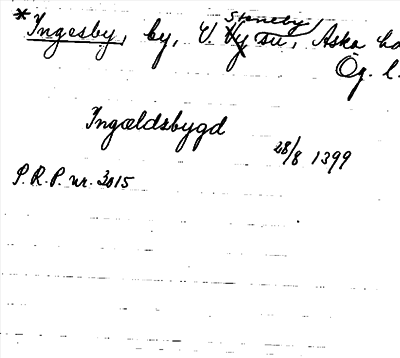 Steneby
*Ingesby, by, V. Ny sn, Aska ha
Ög. l.
Ingældsbygd
28/8 1399
P.R.P. nr. 3015